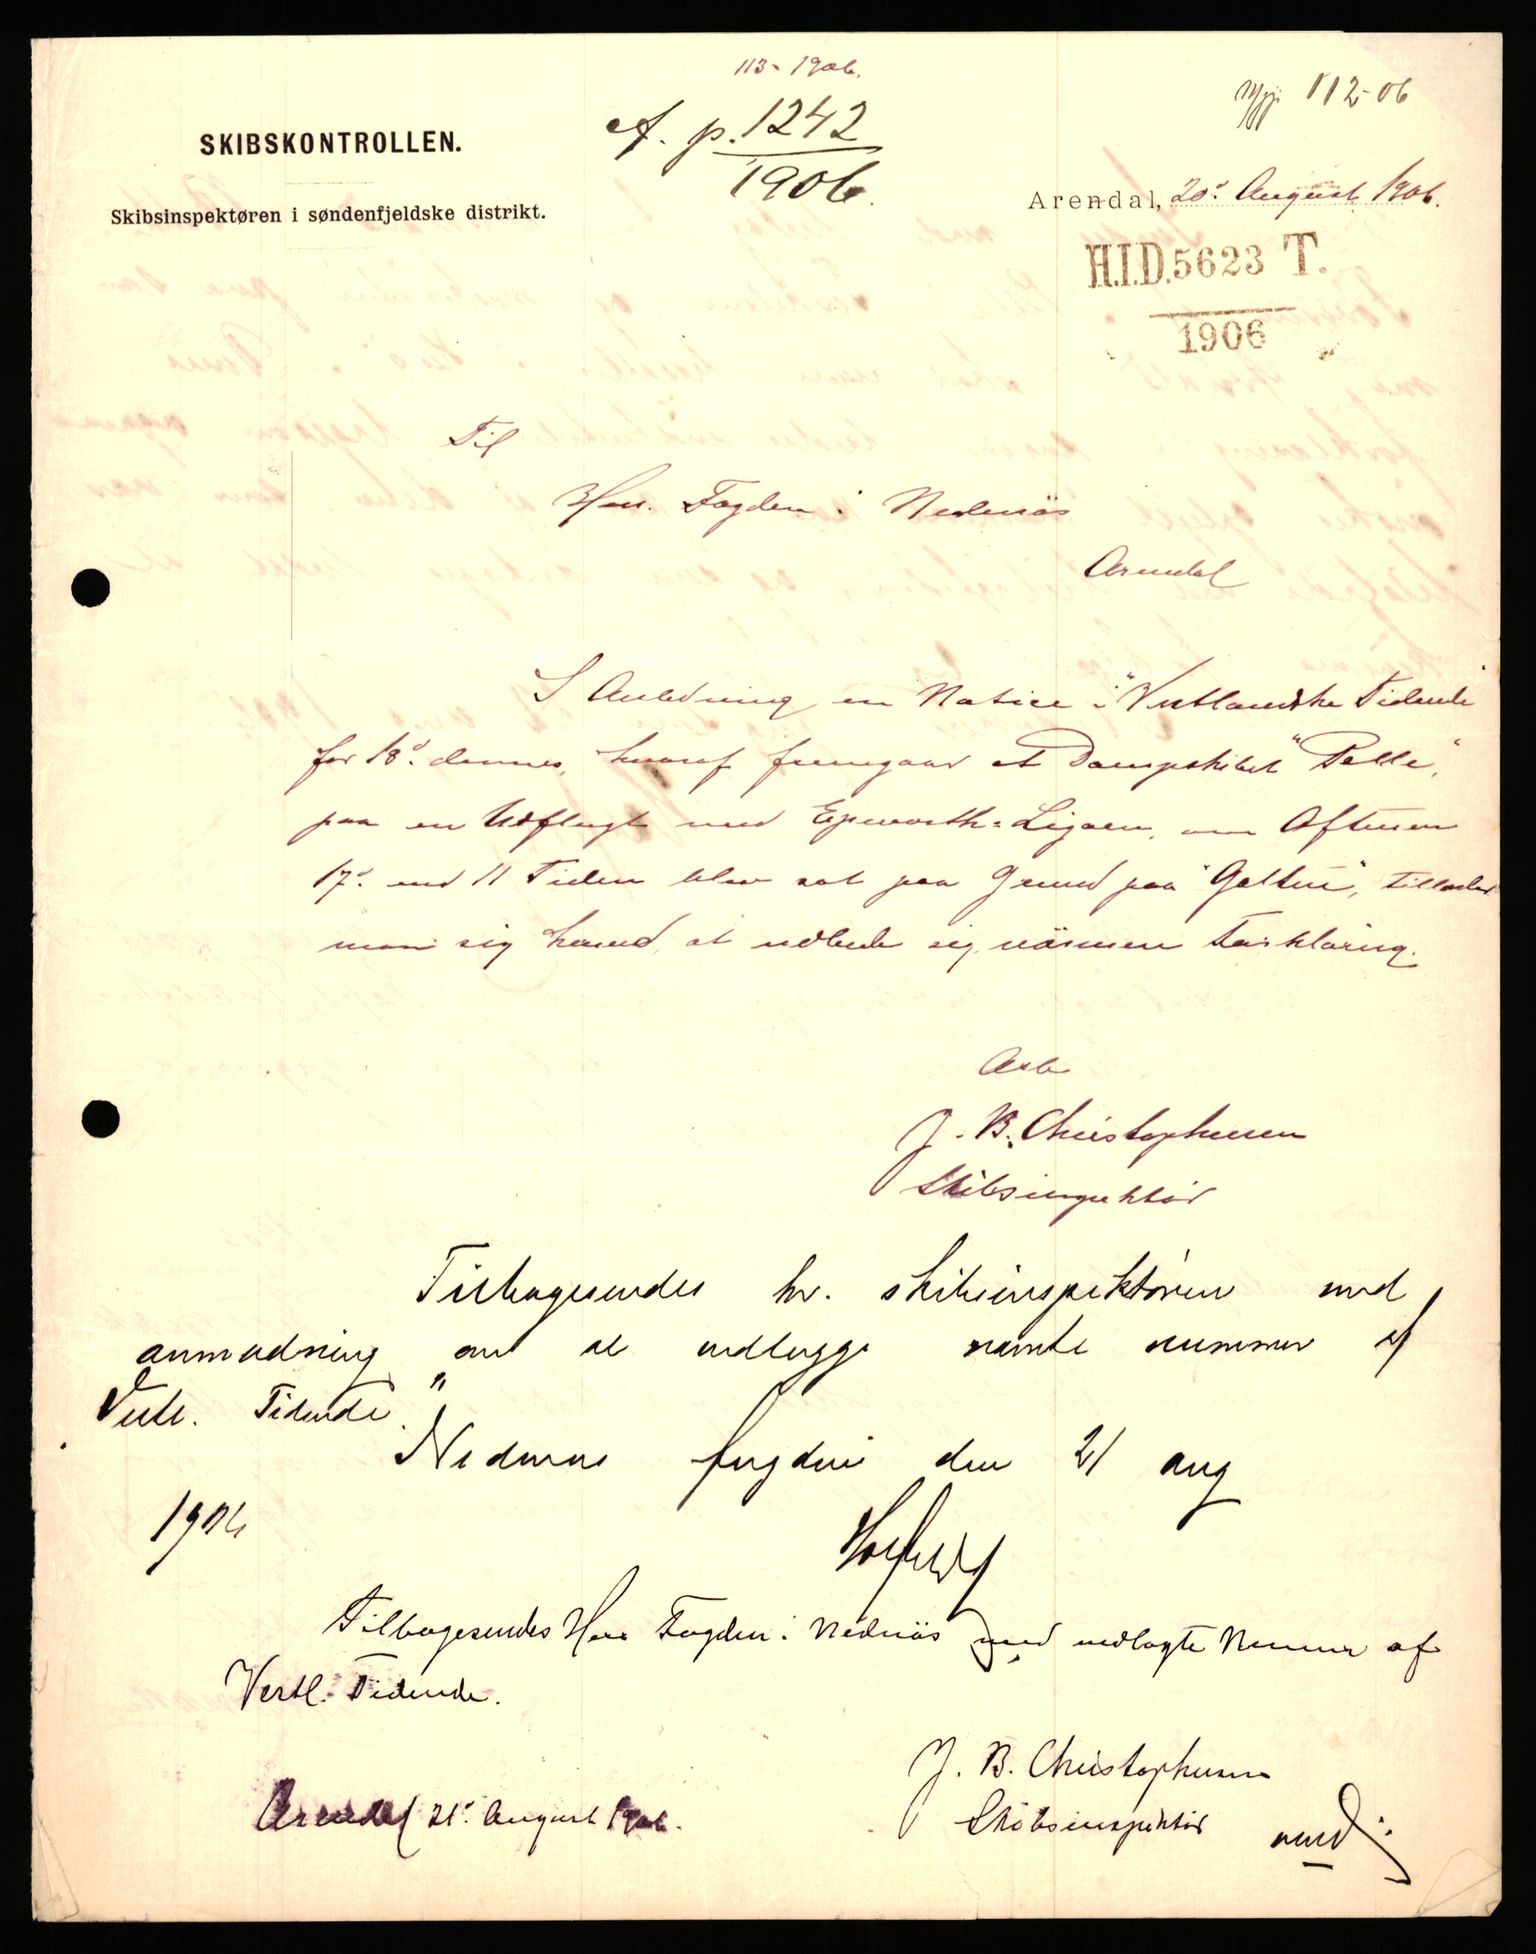 113-1906.
112-06
cf. p. 1242
1906.
SKIBSKONTROLLEN.
Skibsinspektøren i søndenfjeldske distrikt.
Arendal, 20d August 1906.
H.I.D. 5623 T.
1906
Til
Herr Fogden i Nedenäs
Arendal
I Anledning en Notice i "Vestlandske Tidende"
for 18d. dennes, hvoraf fremgaar at Dampskibet "Pelle",
paa en Udflugt med Epworth-Ligaen, om Aftenen
17d. ved 11 Tiden blev sat paa Grund paa "Galten", tillader
man sig herved at udbede sig närmere Forklaring.
Arb
J. B. Christophersen
Skibsinspektör
Tilbagesendes hr. skibsinspektören med
anmodning om at vedlægge nævnte nummer af
"Vestl. Tidende"
Nedenes fogderi den 21 aug
1906
Tilbagesendes Herr Fogden i Nedenäs med vedlagte Nummer af
Vestl. Tidende.
Arendal 21d. August 1906.
J. B. Christophersen
Skibsinspektör
vend